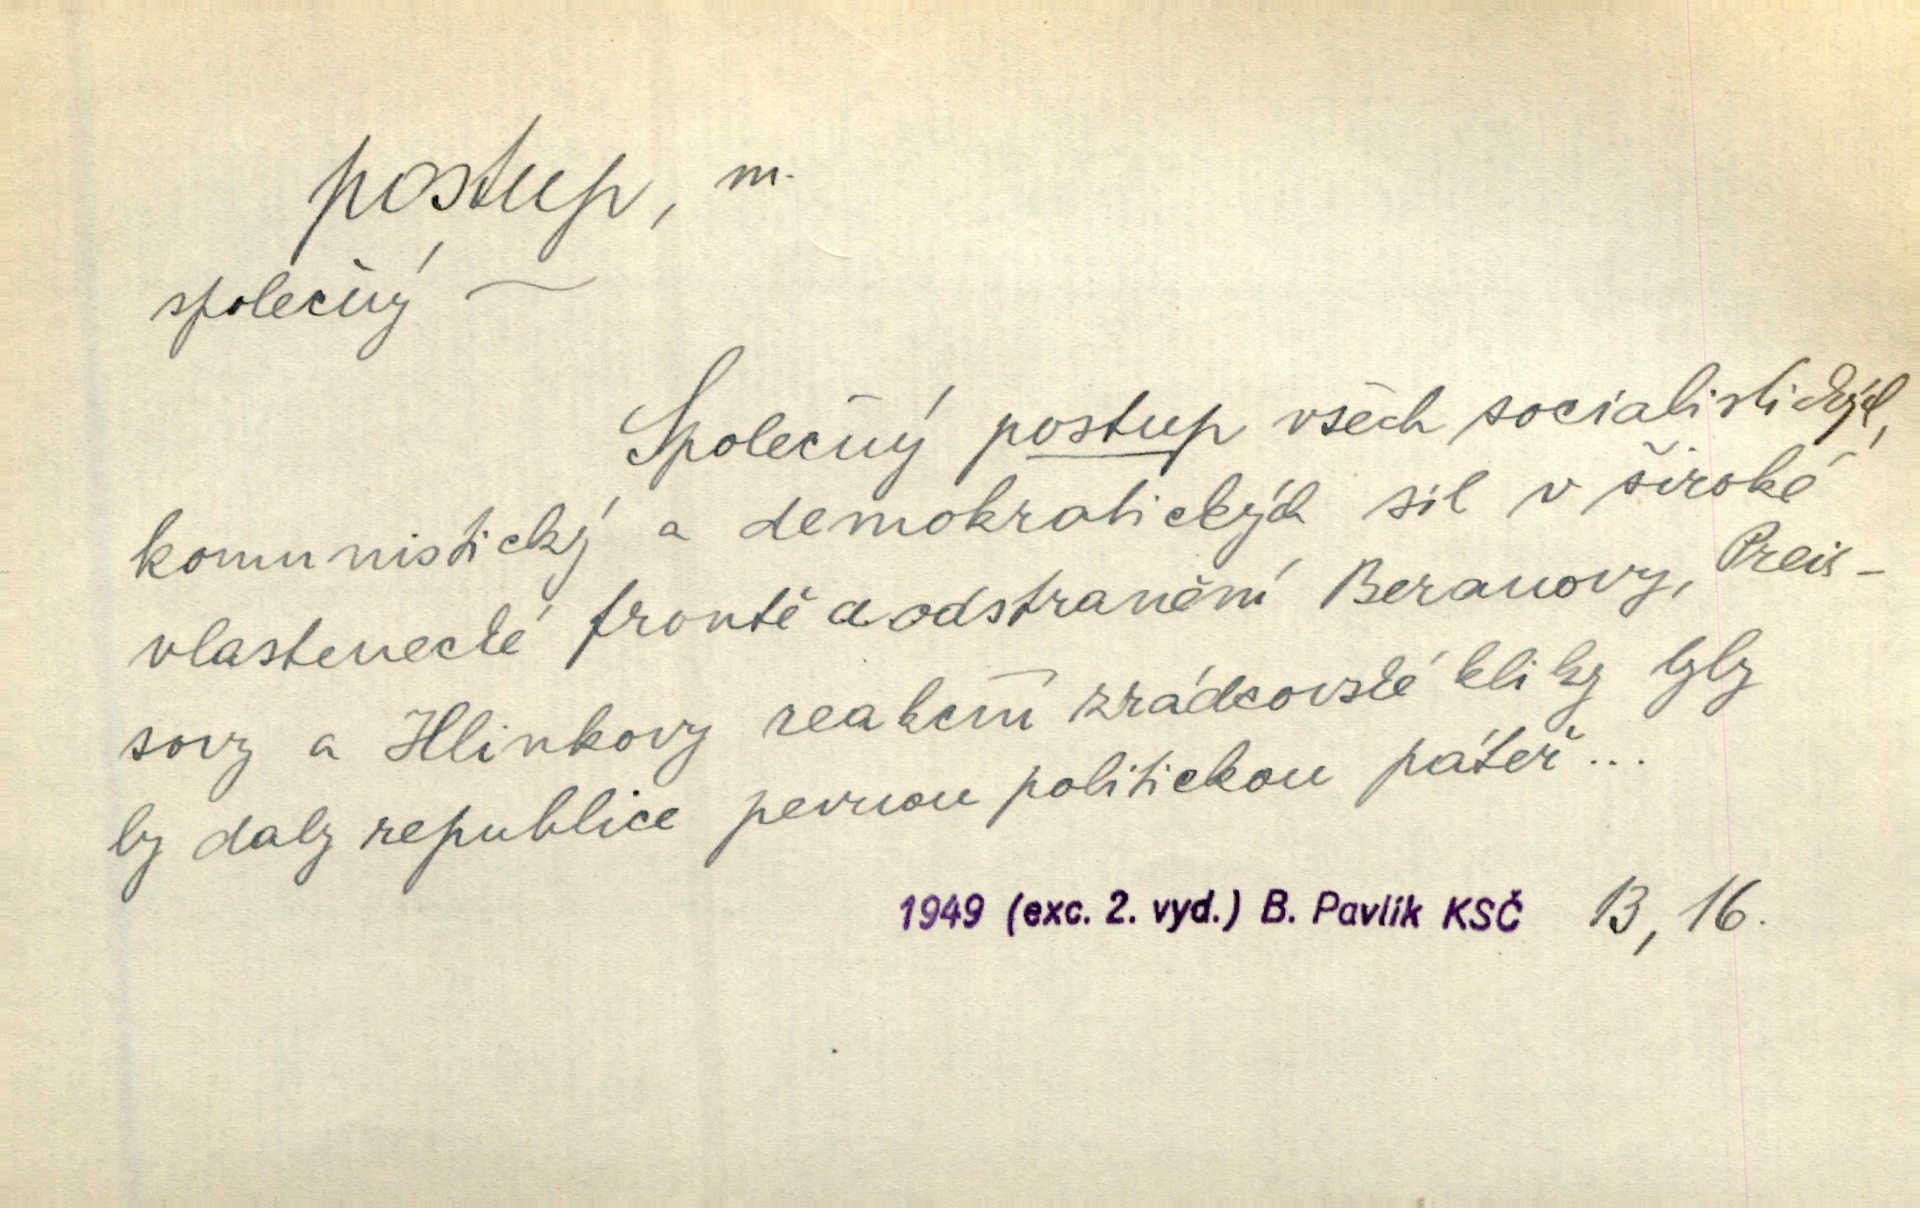 postup, m.
společný ~
Společný postup všech socialistických,
komunistický a demokratických sil v široké
vlastenecké frontě a odstranění Beranovy, Preis-
sovy a Hlinkovy reakční zrádcovské kliky byly
by daly republice pevnou politickou páteř...
1949 (exc. 2. vyd.) B. Pavlík KSČ 13, 16.